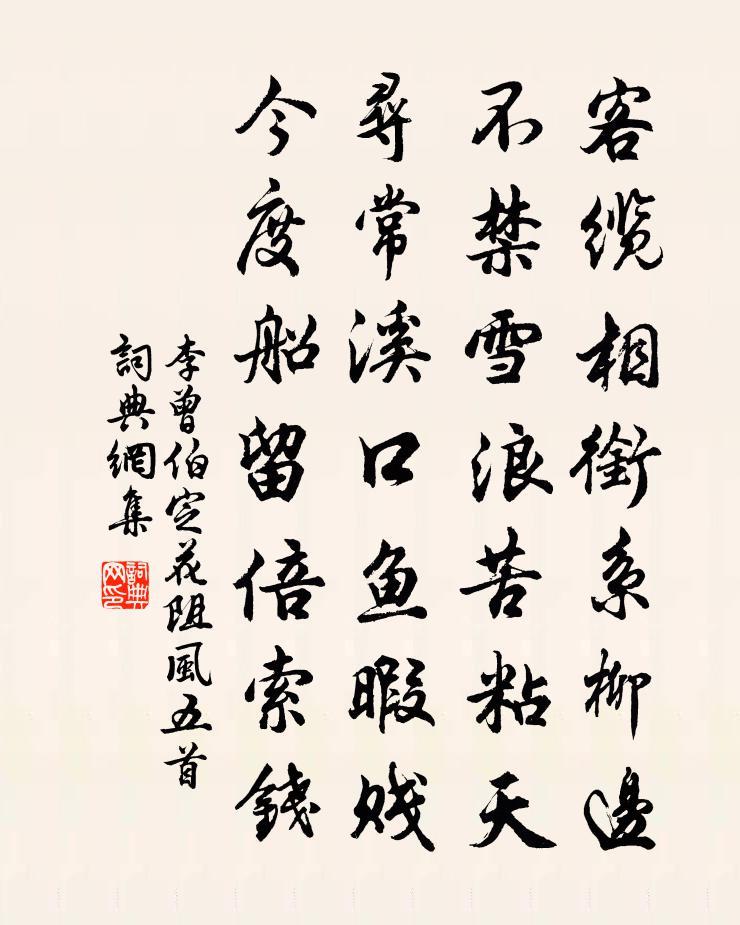 客缆相銜系柳邊
不禁雪浪苦粘天
尋常溪口鱼暇贱
今度船留倍索錢
李曾伯定花阻風五首
詞典網集
詞典网印